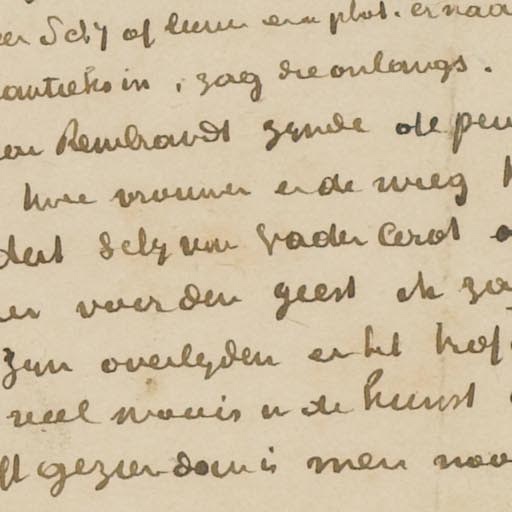 een Schij of leum een phot. er naar
antieks in, zag die onlangs.
van Rembrandt zynde de pen
twee vrouwen en de wieg
dat Schij van Vader Corot
voor den geest ik zag
zyn overlyden en het trof
veel moois in de kunst
ft gezien dan is men nooi